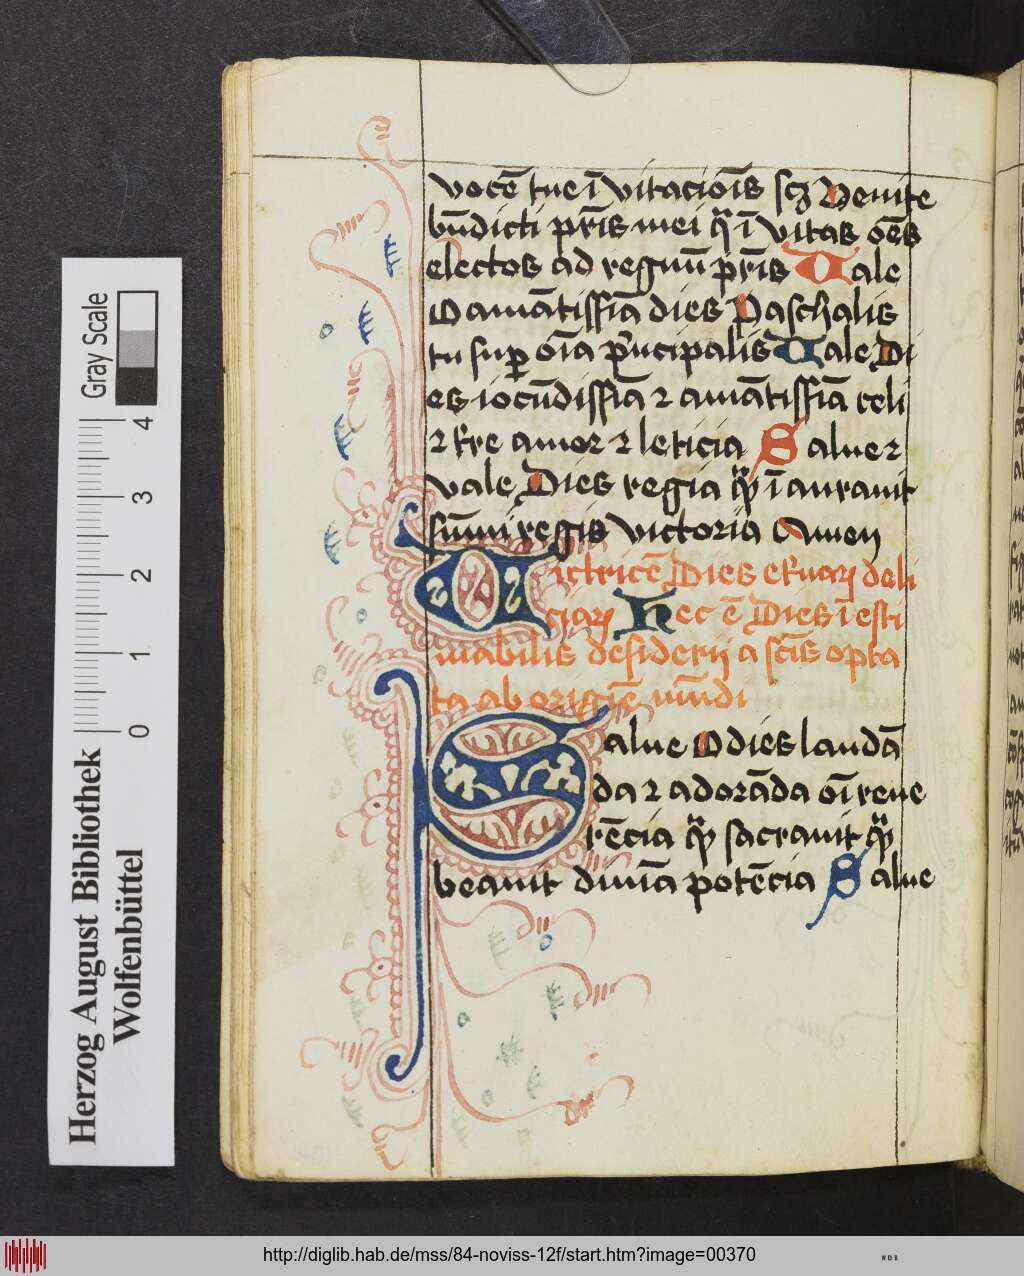 vocē tue ī vitacioīs scꝫ Venite
bn̄dicti pr̄is mei q̄ ī vitas oēs
electos ad regnū pr̄is Vale
O amātissīa dies Paschalis
tu suꝑ oīa pͥncipalis Vale Di
es iocūdissīa ⁊ amātissīa celi
⁊ tr̄e amor ⁊ leticia Salue ⁊
vale Dies regia q̄ ī aurauit
sūmi regis victoria Amen
Victricē Dies et'naꝝ deli
ciaꝝ Hec ē Dies ī esti
mabilis desiderij a sc̄is opta
ta ab origīe mūdi
Salue O dies laudā
da ⁊ adorāda oī reue
rēcia q̄ sacrauit q̄
beauit diuīa potēcia Salue
Gray Scale
4
3
2
1
0
Herzog August Bibliothek
Wolfenbüttel
http://diglib.hab.de/mss/84-noviss-12f/start.htm?image=00370